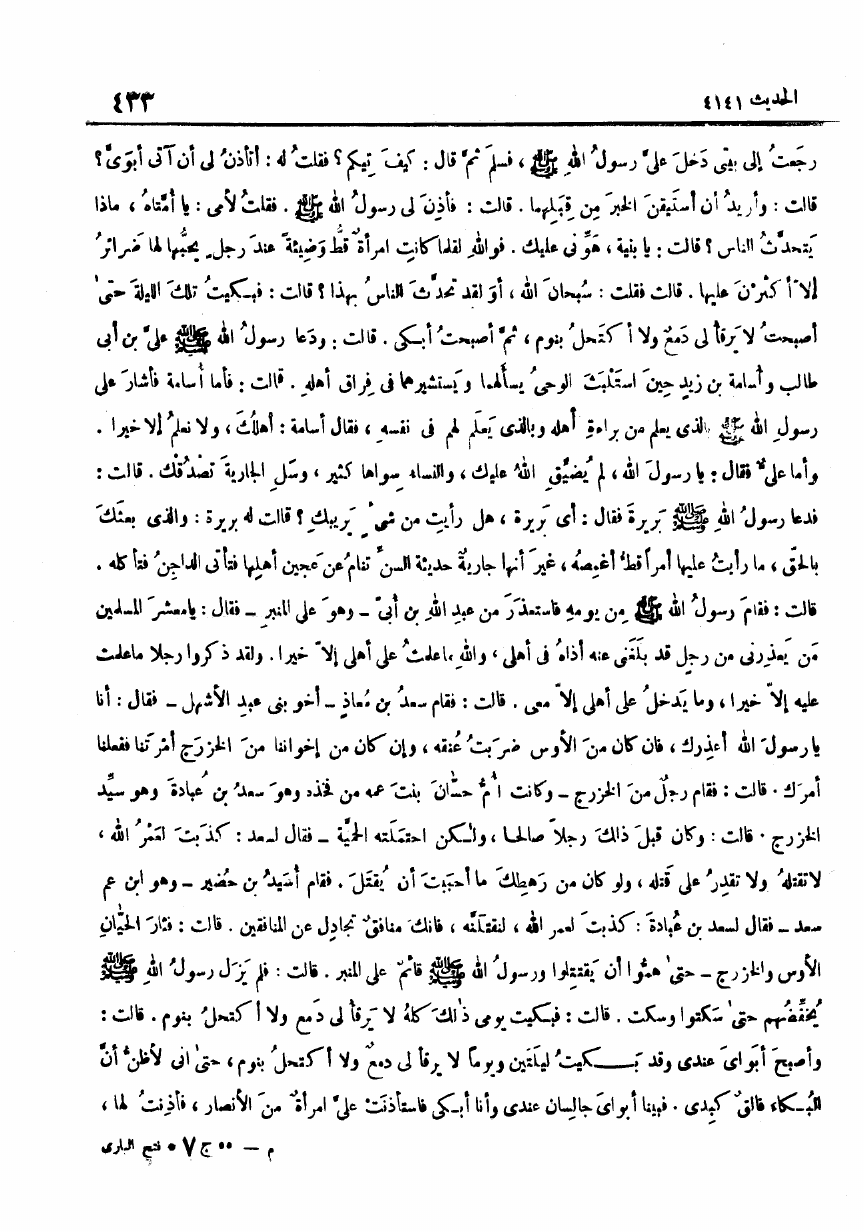 الحديث ٤١٤١
٤٣٣
رجَعتُ إلى بيتى دَخلَ علىَّ رسولُ اللهِ ﷺ ، فسلمَ ثمَّ قال : كيفَ تِيكم ؟ فقلتُ له : أتأذنُ لى أن آتى أبوَىَّ ؟
قالت : وأريدُ أن أستَيقنَ الخبرَ مِن قِبَلِهما . قالت : فأذِنَ لى رسولُ الله ﷺ . فقلتُ لأمى : يا أمَّتاهُ ، ماذا
يَتحدَّثُ الناس ؟ قالت : يا بنية ، هَوِّنى عليك . فواللهِ لقلما كانتِ امرأةٌ قطُّ وَضِيئةً عندَ رجلٍ يحبُّها لها ضَرائرُ
إلا أكثرْنَ عليها . قالت فقلت : سُبحانَ الله ، أوَ لقد تحدَّثَ الناسُ بهذا ؟ قالت : فبكيتُ تلكَ الليلةَ حتىٰ
أصبحتُ لا يَرقأ لى دَمعٌ ولا أكتَحلُ بنوم ، ثمَّ أصبحتُ أبكى . قالت : ودَعا رسولُ الله ﷺ علىَّ بن أبى
طالب وأسامة بن زيدٍ حِينَ استَلْبثَ الوحىُ يسألهما ويَستشيرهما فى فِراق أهلهِ . قالت : فأما أسامة فأشارَ على
رسولِ الله ﷺ بالذى يعلم من براءةِ أهله وبالذى يَعلَم لهم فى نفسهِ ، فقال أسامة : أهلكَ ، ولا نعلمُ إلا خيرا .
وأما علىٌّ فقال : يا رسولَ الله ، لم يُضيِّقِ اللهُ عليك ، والنساء سِواها كثير ، وسَلِ الجاريةَ تصْدُقْك . قالت :
فدعا رسولُ اللهِ ﷺ بَرِيرةَ فقال : أى بَرِيرة ، هل رأيتِ من شىءٍ يَريبكِ ؟ قالت له بريرة : والذى بعثَكَ
بالحقِّ ، ما رأيتُ عليها أمراً قطُّ أغمِصهُ ، غيرَ أنها جاريةٌ حديثة السنِّ تنامُ عن عَجين أهلِها فتأتى الداجِنُ فتأكله .
قالت : فقامَ رسولُ الله ﷺ مِن يومهِ فاستعذَرَ من عبدِ اللهِ بن أبىّ – وهوَ على المنبرِ – فقال : يا معشرَ المسلمين
مَن يَعذِرنى من رجلٍ قد بلَغَنى عنه أذاهُ فى أهلى ، واللهِ ما علمتُ على أهلى إلاّ خيرا . ولقد ذكروا رجلا ما علمت
عليه إلاّ خيرا ، وما يَدخلُ على أهلى إلاّ معى . قالت : فقام سعدُ بن مُعاذٍ – أخو بنى عبدِ الأشهل – فقال : أنا
يا رسولَ الله أعذِرك ، فان كان منَ الأوس ضرَبتُ عُنقه ، وإن كان من إخواننا منَ الخزرَج أمَرتَنا ففعلنا
أمرَك . قالت : فقام رجلٌ منَ الخزرج – وكانت أمُّ حسّانَ بنتَ عمه من فخذه وهوَ سعدُ بن عُبادةَ وهو سيِّد
الخزرج . قالت : وكان قبلَ ذٰلكَ رجلاً صالحا ، ولٰكن احتمَلَته الحميَّة – فقال لسعد : كذَبتَ لعَمْرُ الله ،
لا تقتلهُ ولا تقدِرُ على قَتله ، ولو كان من رَهطِكَ ما أحبَبتَ أن يُقتَلَ . فقام أُسَيدُ بن حُضَير – وهو ابن عم
سعد – فقال لسعد بن عُبادةَ : كذبتَ لعمر الله ، لنقتلنَّه ، فانكَ منافقٌ تجادِل عن المنافقين . قالت : فثارَ الحيّانِ
الأوس والخزرج – حتىٰ همُّوا أن يَقتتِلوا ورسولُ الله ﷺ قائمٌ على المنبر . قالت : فلم يَزَل رسولُ اللهِ ﷺ
يُخَفِّضُهم حتىٰ سَكتوا وسكت . قالت : فبكيت يومى ذٰلكَ كلهُ لا يَرقأُ لى دَمع ولا أكتحلُ بنوم . قالت :
وأصبحَ أبَواىَ عندى وقد بَكيتُ ليلَتين ويوماً لا يرقأ لى دمعٌ ولا أكتحلُ بنوم ، حتىٰ انى لأظنُّ أنَّ
البُكاء فالقٌ كبِدى . فبينا أبواىَ جالِسان عندى وأنا أبكى فاستأذنَتْ علىَّ امرأةٌ منَ الأنصار ، فأذِنتُ لها ،
م – ٥٥ ج ٧ • فتح البارى